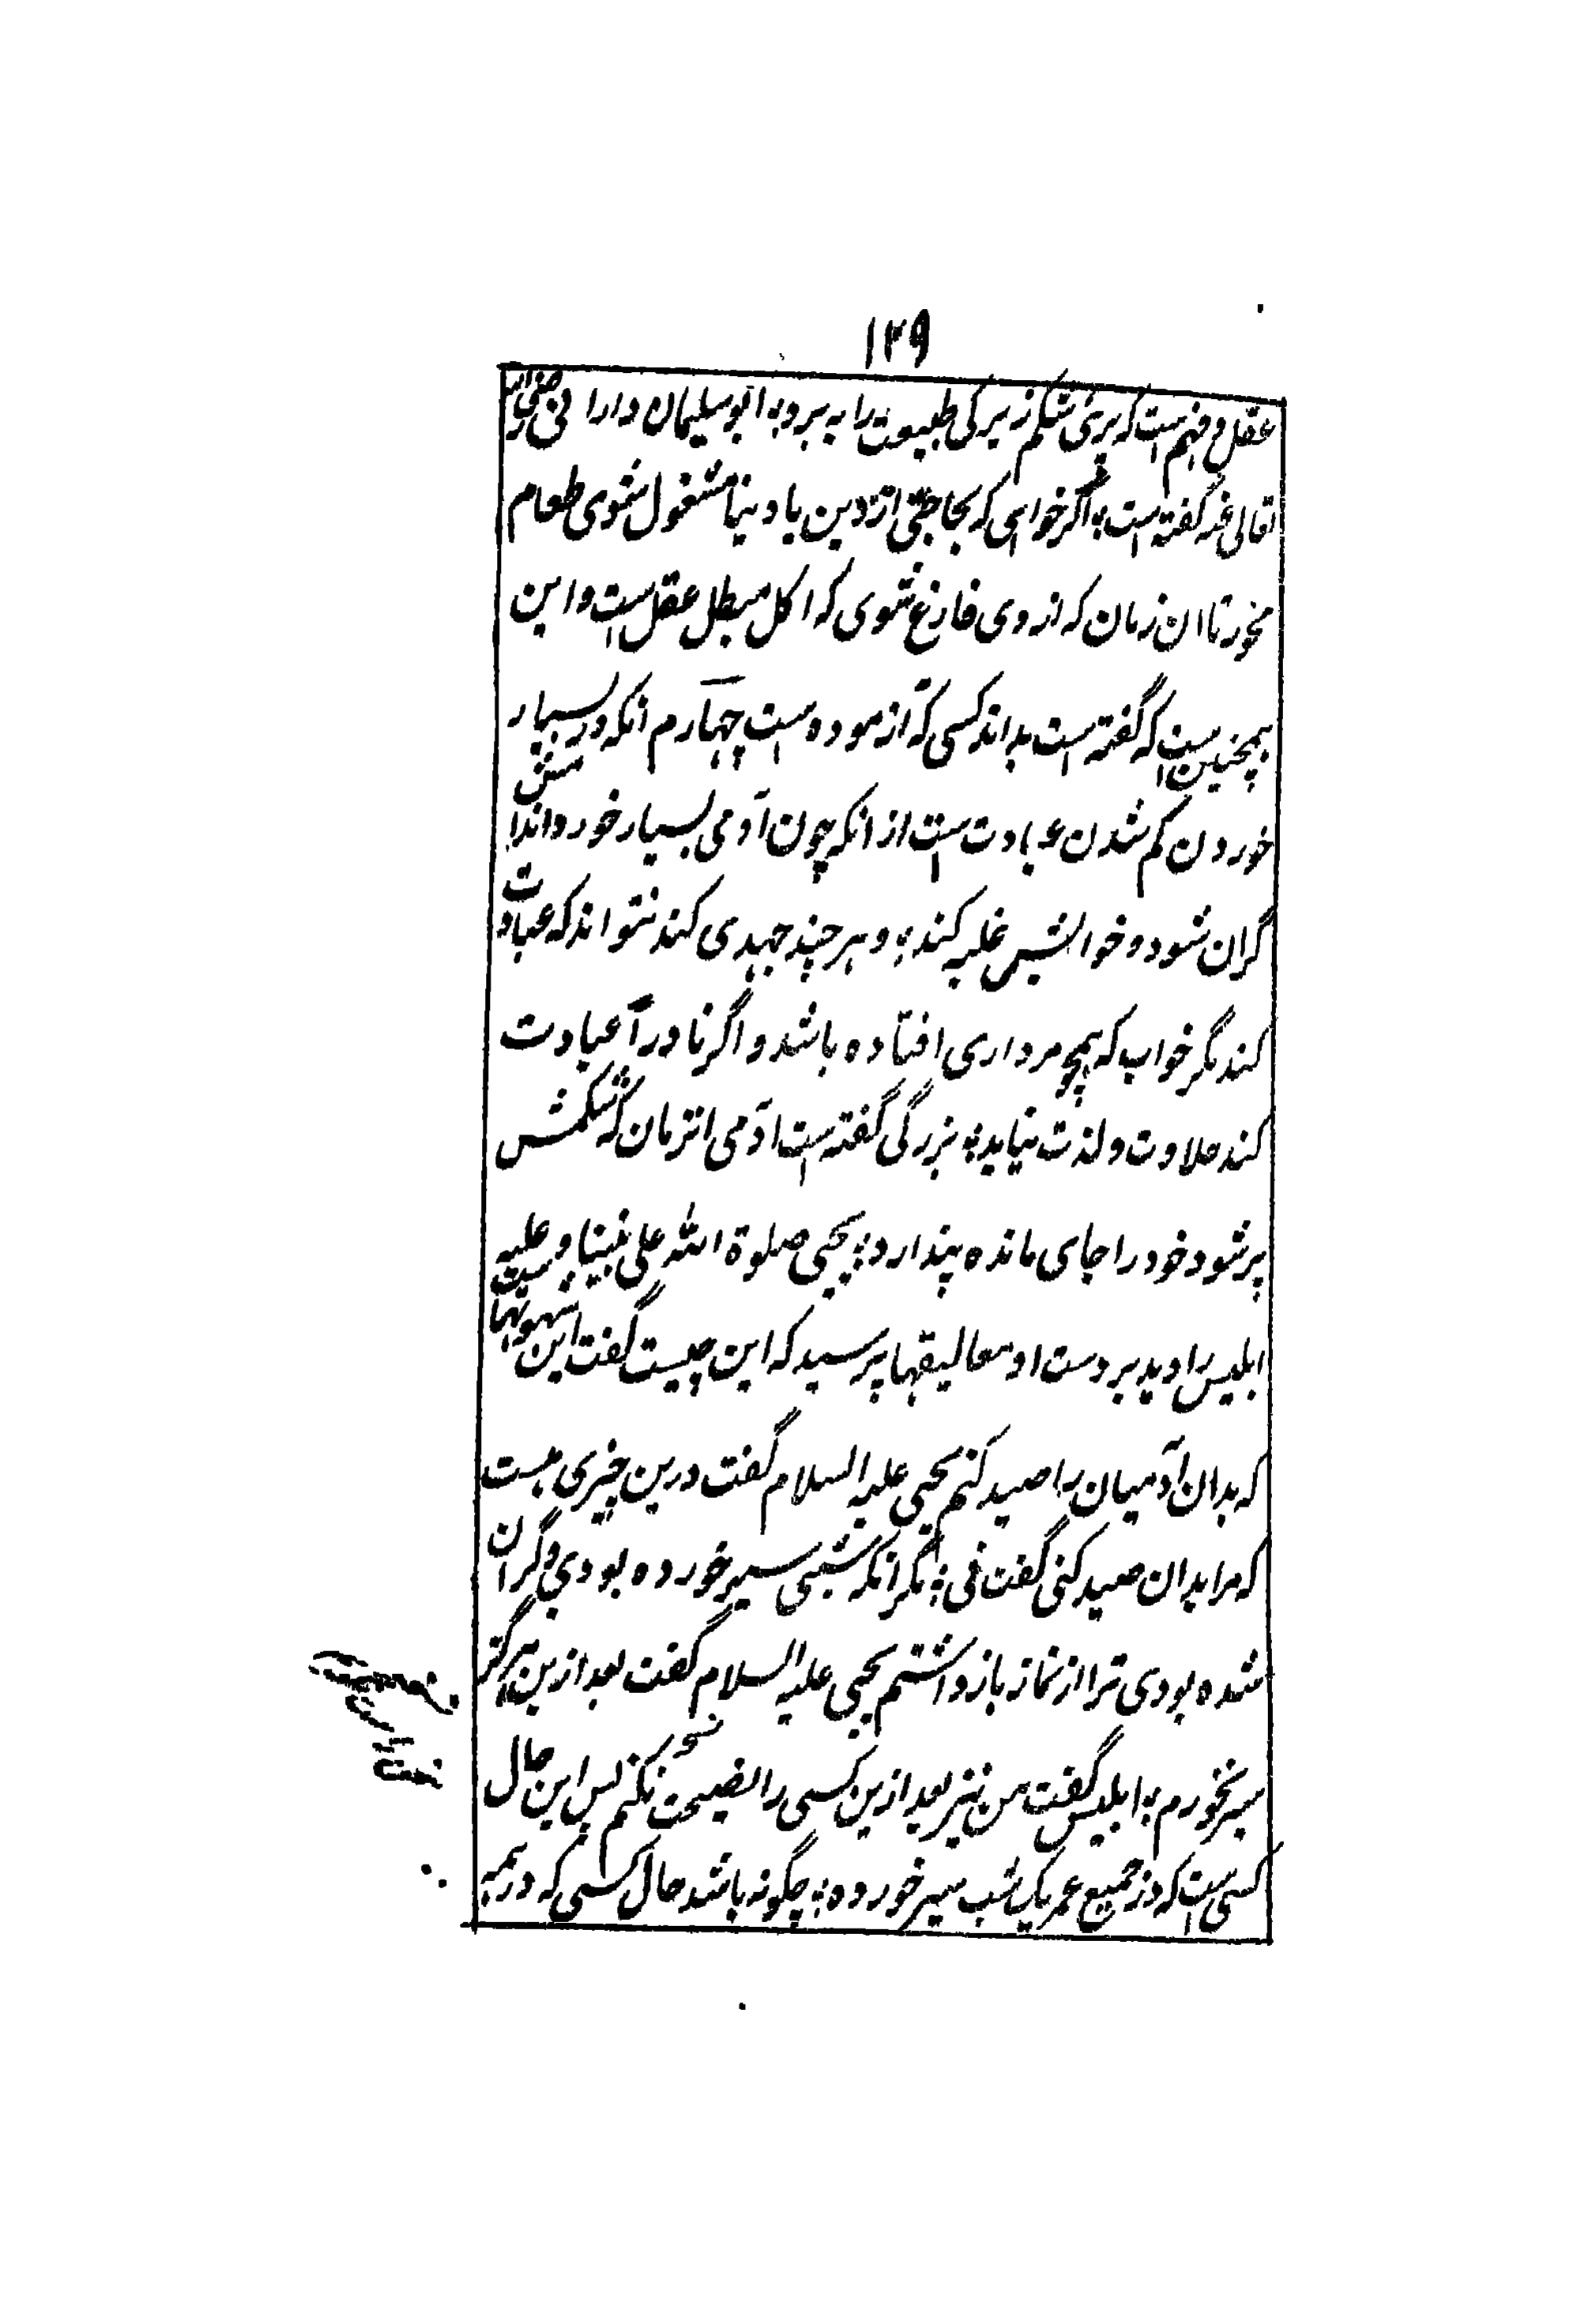 ۱۲۹
عقل و فهم است که پرئ شکم زیرکی طبیعت را به برد؛ ابو سلیمان دارانی رضی الله
تعالی عنه گفته است؛ اگر خواهی که بحاجتی از دین یا دینا مشغول شوی طعام
مخور تا ان زمان که از وی فارغ شوی که اکل مبطل عقل است و این
همچنین است که گفته است بداند کسی که آزموده است چهارم انکه در بسیار
خوردن کم شدن عبادت است از انکه چون آدمی بسیار خورد اندامش
گران شود و خوابش غلبه کند؛ و هر چند جهدی کند نتواند که عبادت
کند مگر خواب که همچو مرداری افتاده باشد و اگر نادراً عبادت
کند حلاوت و لذت نیابد؛ بزرگی گفته است آدمی انزمان که شکمش
پر شود خود را جای مانده پندارد؛ یحیی صلوة الله علی نبینا و علیه
ابلیس را دید بر دست او معالیقها پرسید که این چیست گفت این شهوتهاست
که بدان آدمیان را صید کنم یحیی علیه السلام گفت درین چیزی هست
که مرا بدان صید کنی گفت نی؛ مگر انکه شبی سیر خورده بودی و گران
شده بودی ترا از نماز باز داشتم یحیی علیه السلام گفت بعد ازین هرگز
سیر نخورم؛ ابلیس گفت من نیز بعد ازین کسی را نصیحت نکنم پس این حال
کسی است که در جمیع عمر یک شب سیر خورده؛ چگونه باشد حال کسی که در همه